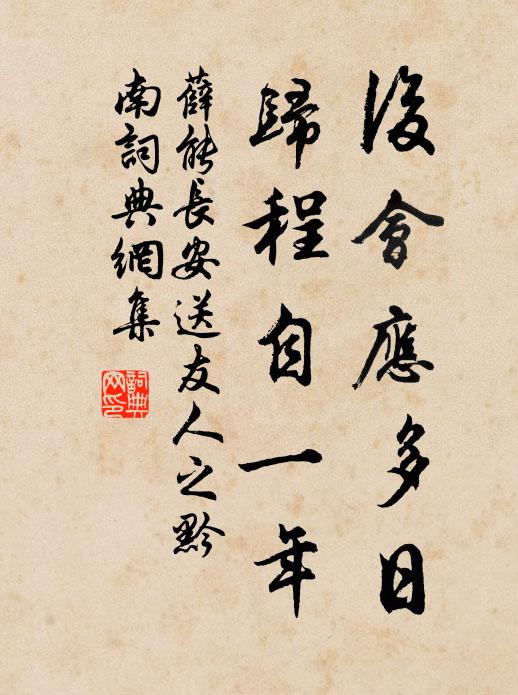 後會應多日
歸程自一年
薛能長安送友人之黔
南詞典網集
詞典
网印